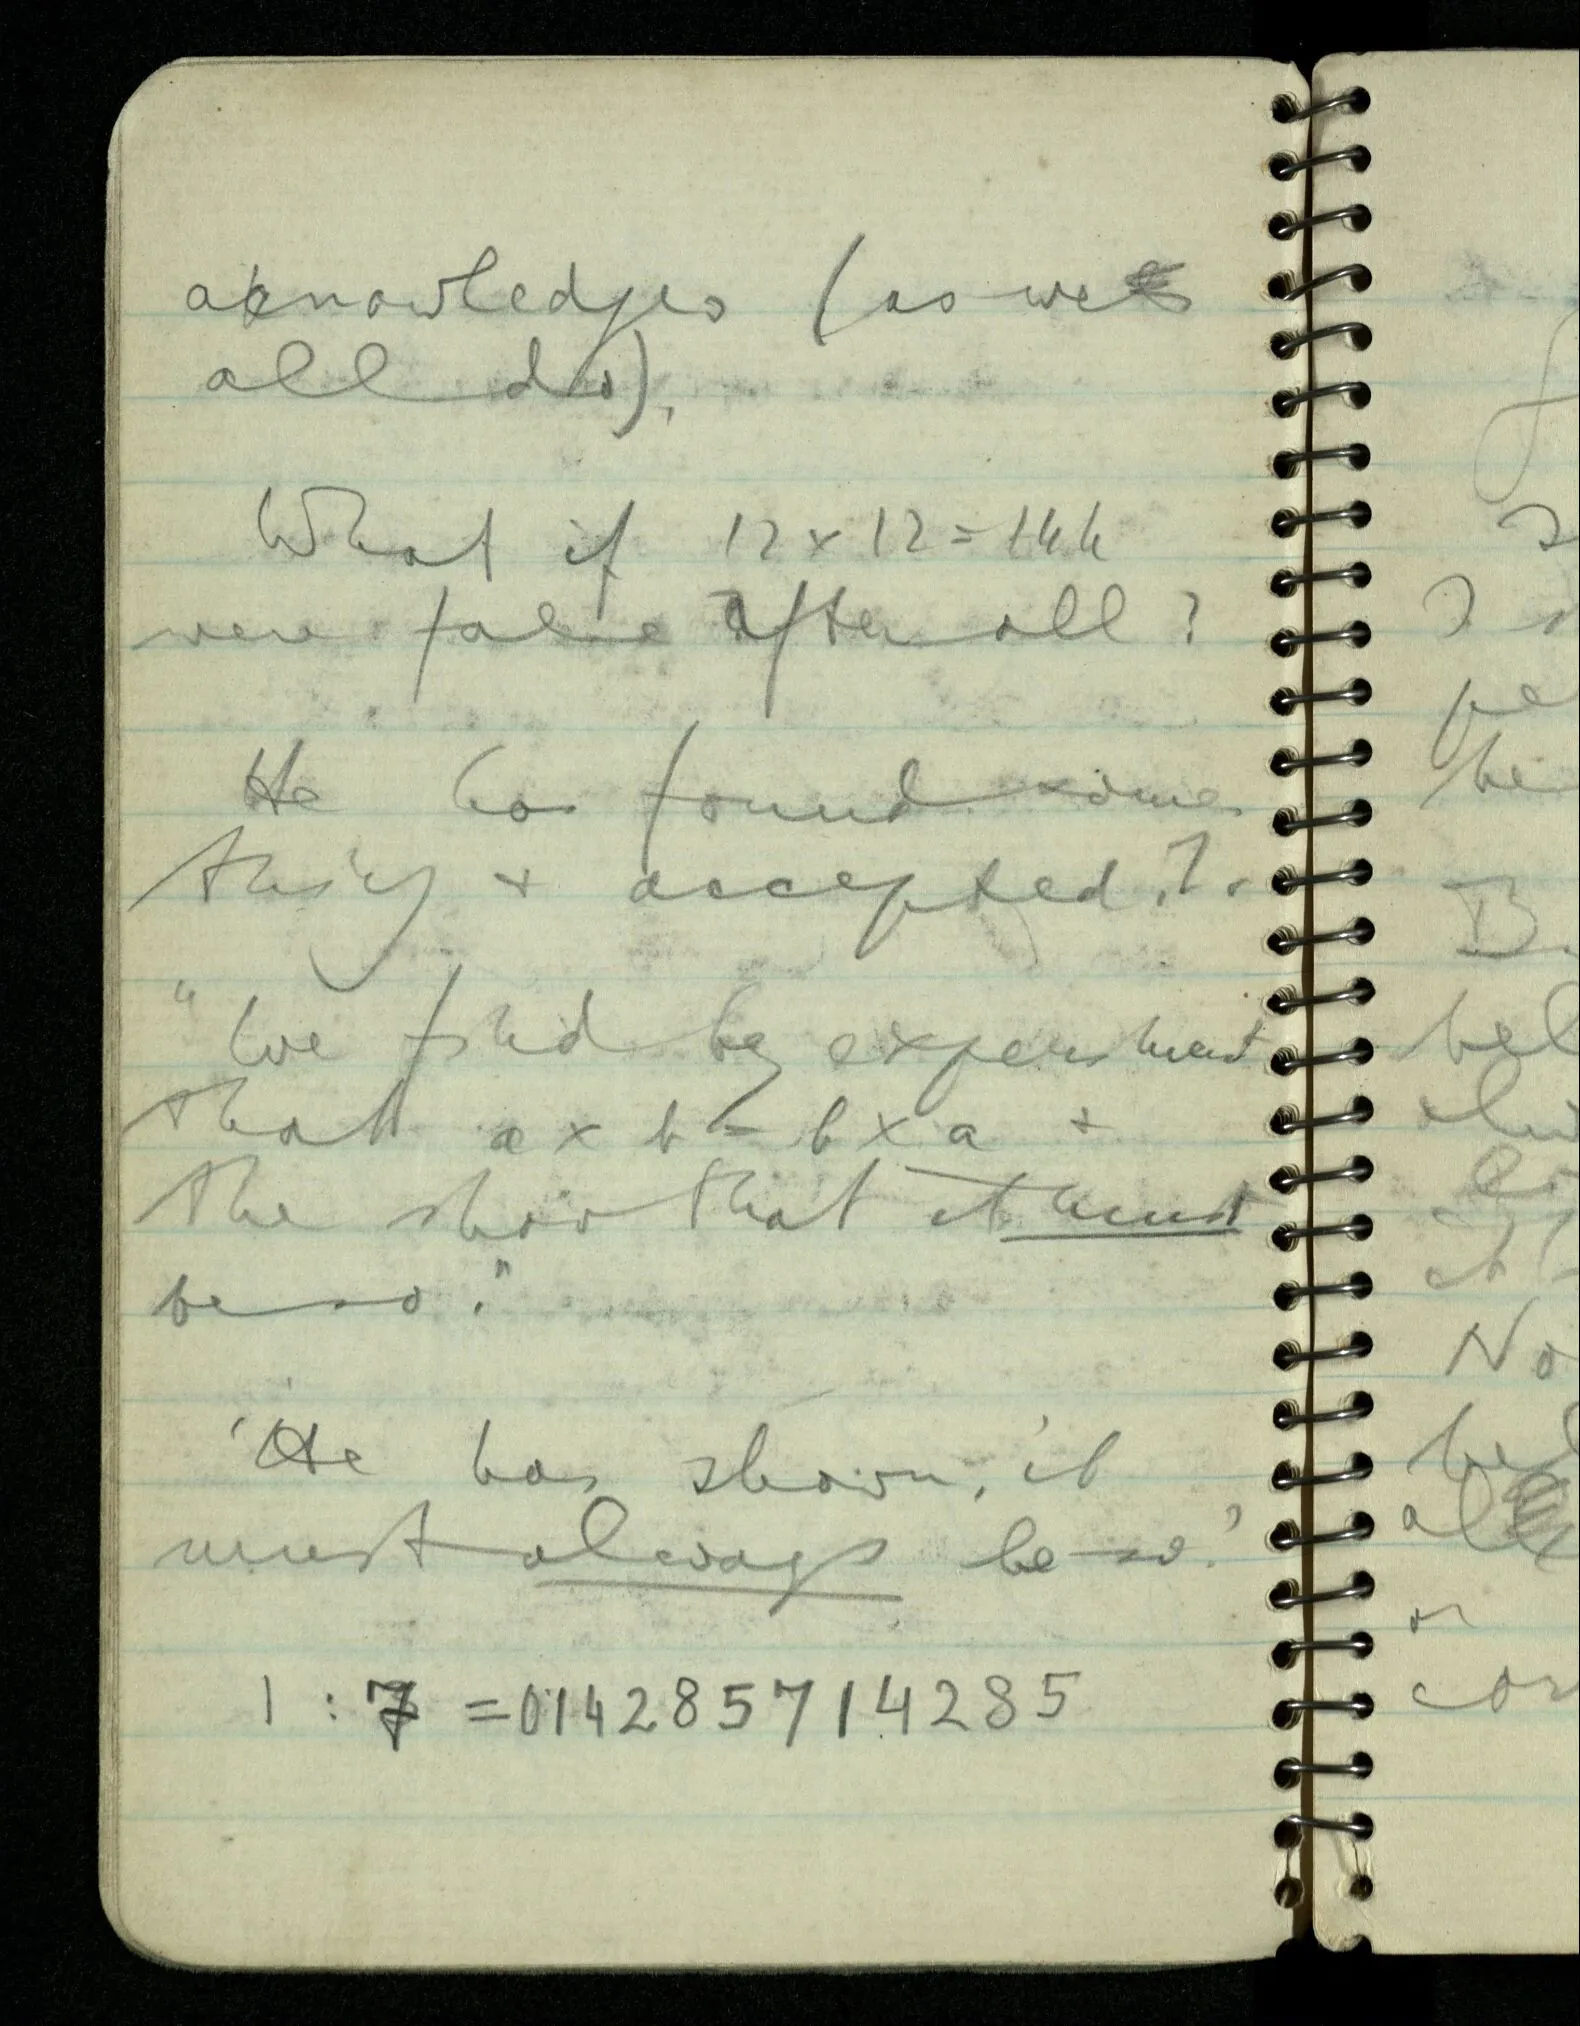 acknowledges (as we
all do),
What if 12 × 12 = 144
were false after all?
He has found some
thing & accepted ?.
"We find by experiment
that a × b = b × a &
the show that it must
be so."
'He has shown, it
must always be so.'
1 : 7 = 0142857142 85
pe
B.
bel
No
bel
or
con